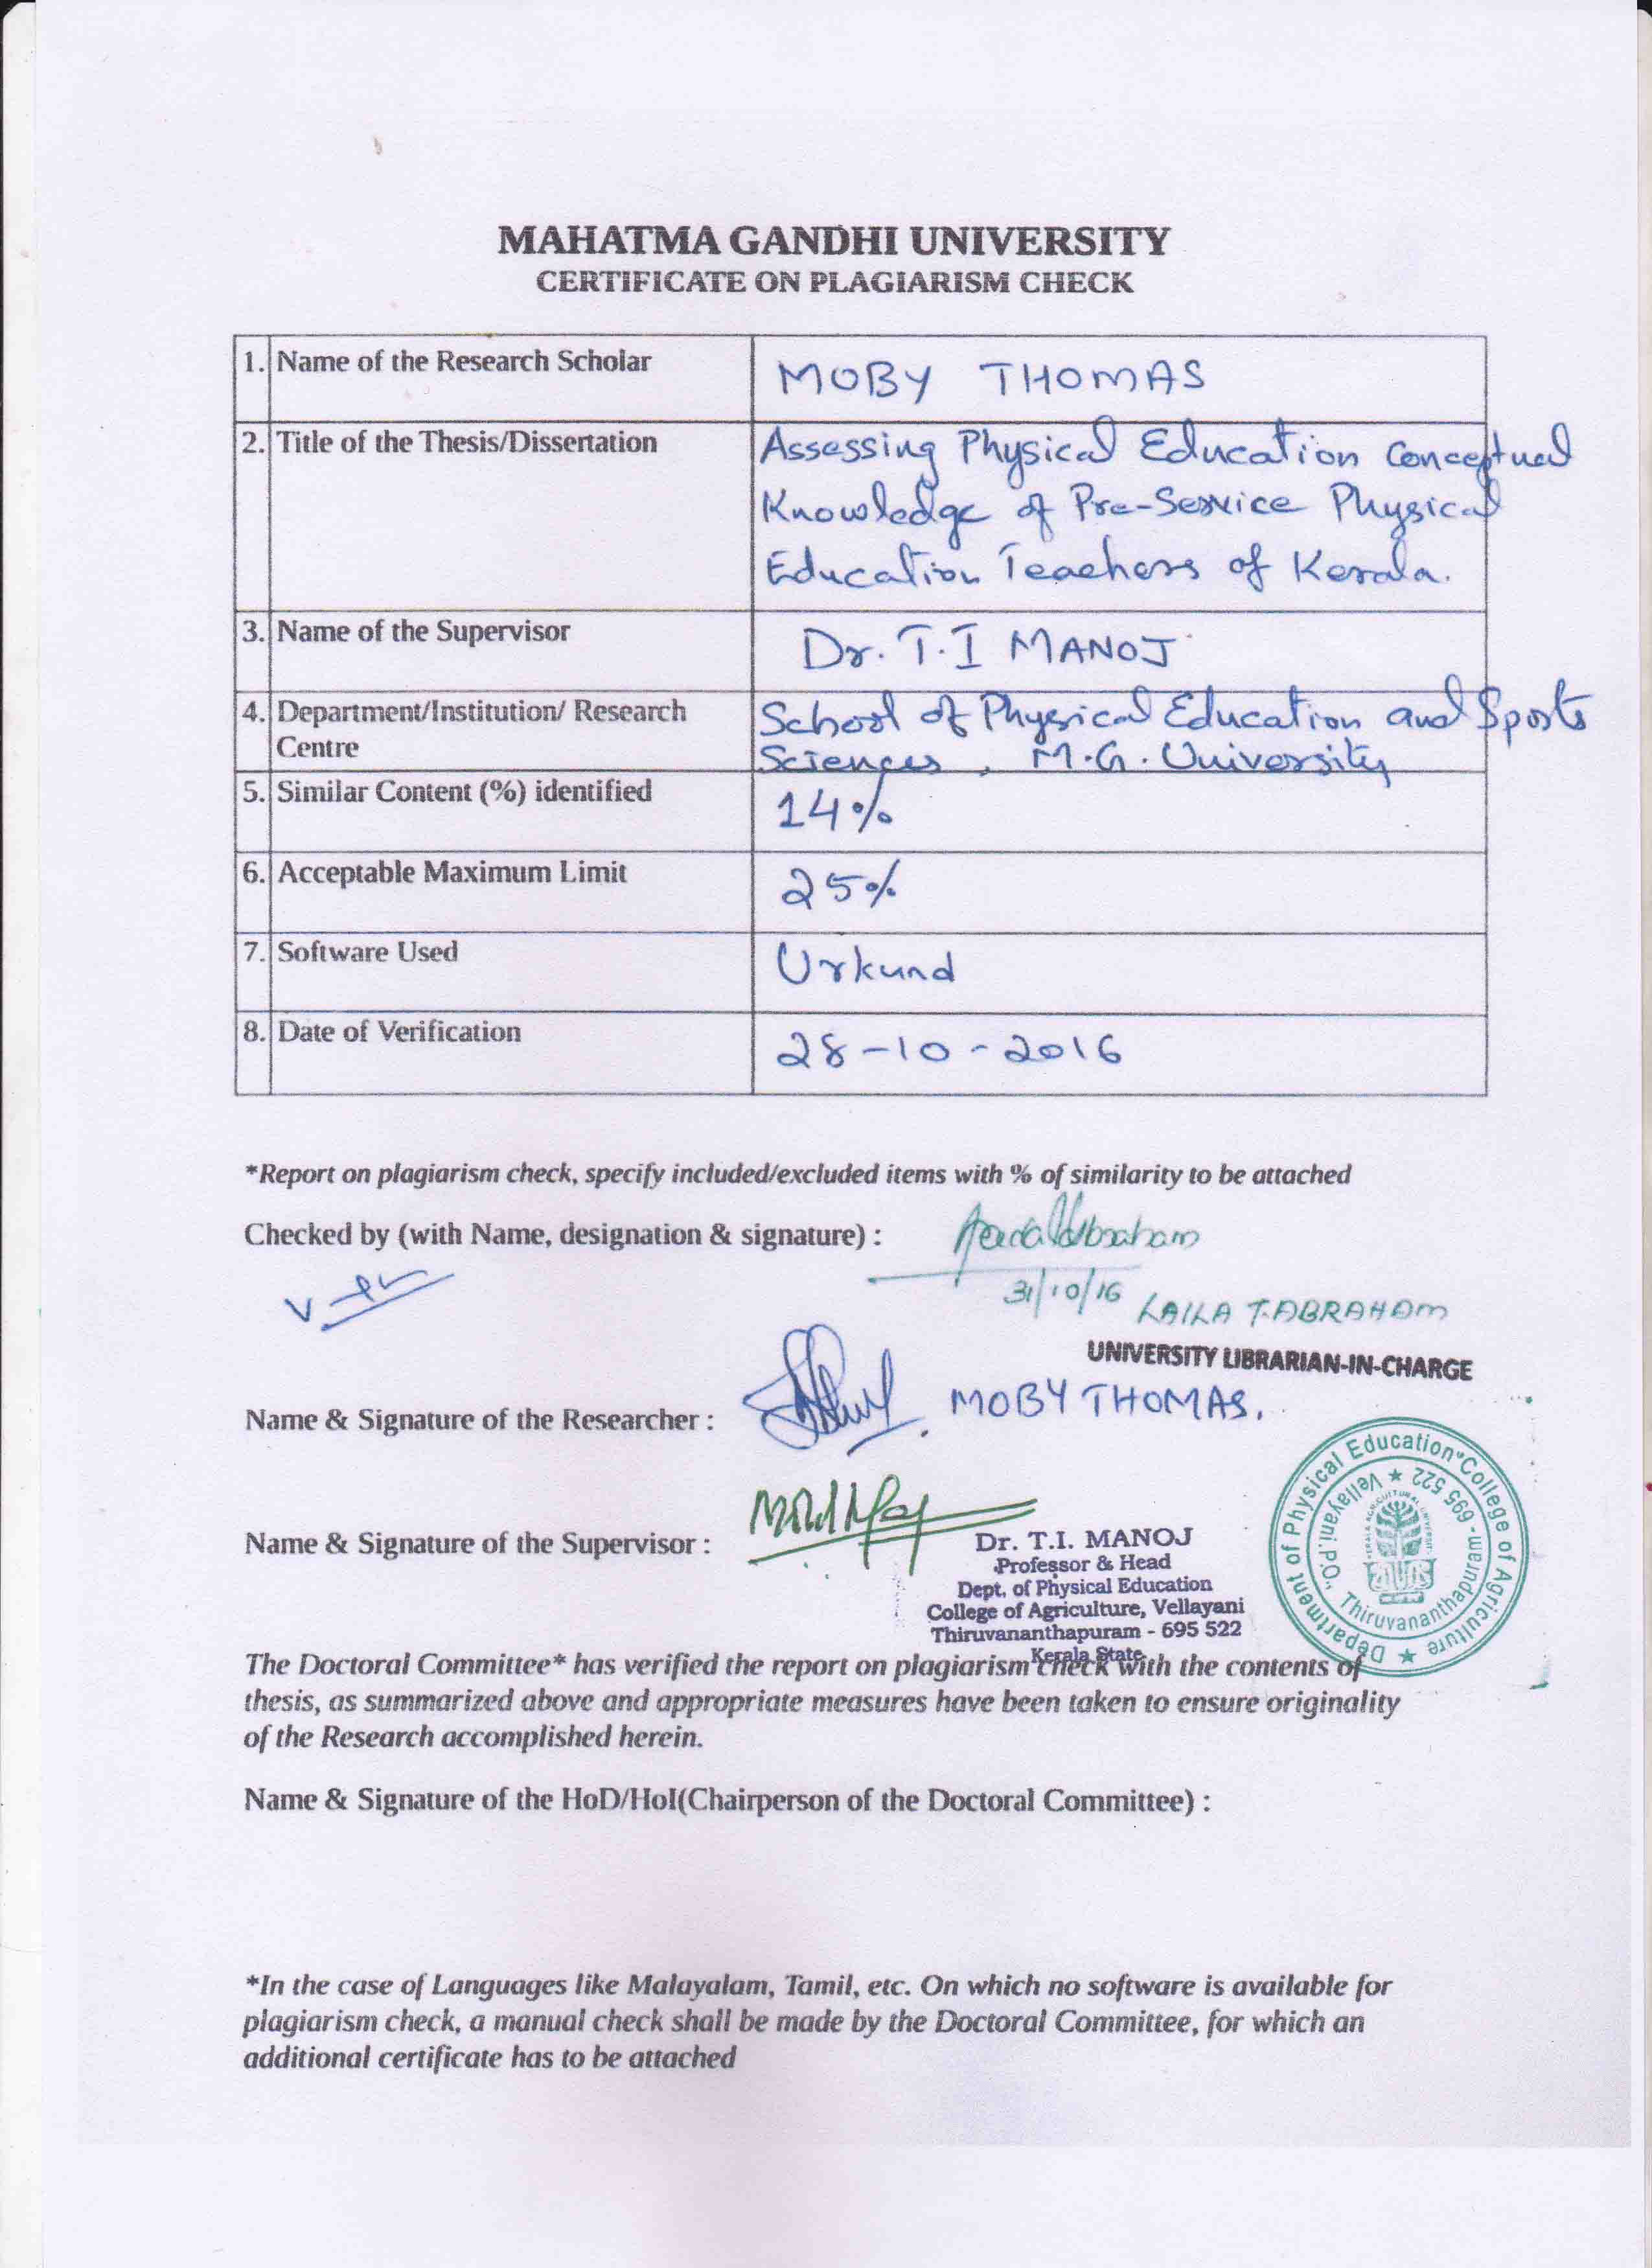 MAHATMA GANDHI UNIVERSITY
CERTIFICATE ON PLAGIARISM CHECK
1. Name of the Research Scholar MOBY THOMAS
2. Title of the Thesis/Dissertation Assessing Physical Education Conceptual
Knowledge of Pre-Service Physical
Education Teachers of Kerala.
3. Name of the Supervisor Dr. T.I MANOJ
4. Department/Institution/ Research School of Physical Education and Sports
Centre Sciences, M.G. University
5. Similar Content (%) identified 14%
6. Acceptable Maximum Limit 25%
7. Software Used Urkund
8. Date of Verification 28-10-2016
*Report on plagiarism check, specify included/excluded items with % of similarity to be attached
Checked by (with Name, designation & signature) :
31/10/16 LAILA T. ABRAHAM
UNIVERSITY LIBRARIAN-IN-CHARGE
Name & Signature of the Researcher : MOBY THOMAS.
Name & Signature of the Supervisor :
Dr. T.I. MANOJ
Professor & Head
Dept. of Physical Education
College of Agriculture, Vellayani
Thiruvananthapuram - 695 522
Kerala State
Department of Physical Education "College of Agriculture
Vellayani.P.O" Thiruvananthapuram - 695 522
The Doctoral Committee* has verified the report on plagiarism check with the contents of
thesis, as summarized above and appropriate measures have been taken to ensure originality
of the Research accomplished herein.
Name & Signature of the HoD/HoI(Chairperson of the Doctoral Committee) :
*In the case of Languages like Malayalam, Tamil, etc. On which no software is available for
plagiarism check, a manual check shall be made by the Doctoral Committee, for which an
additional certificate has to be attached